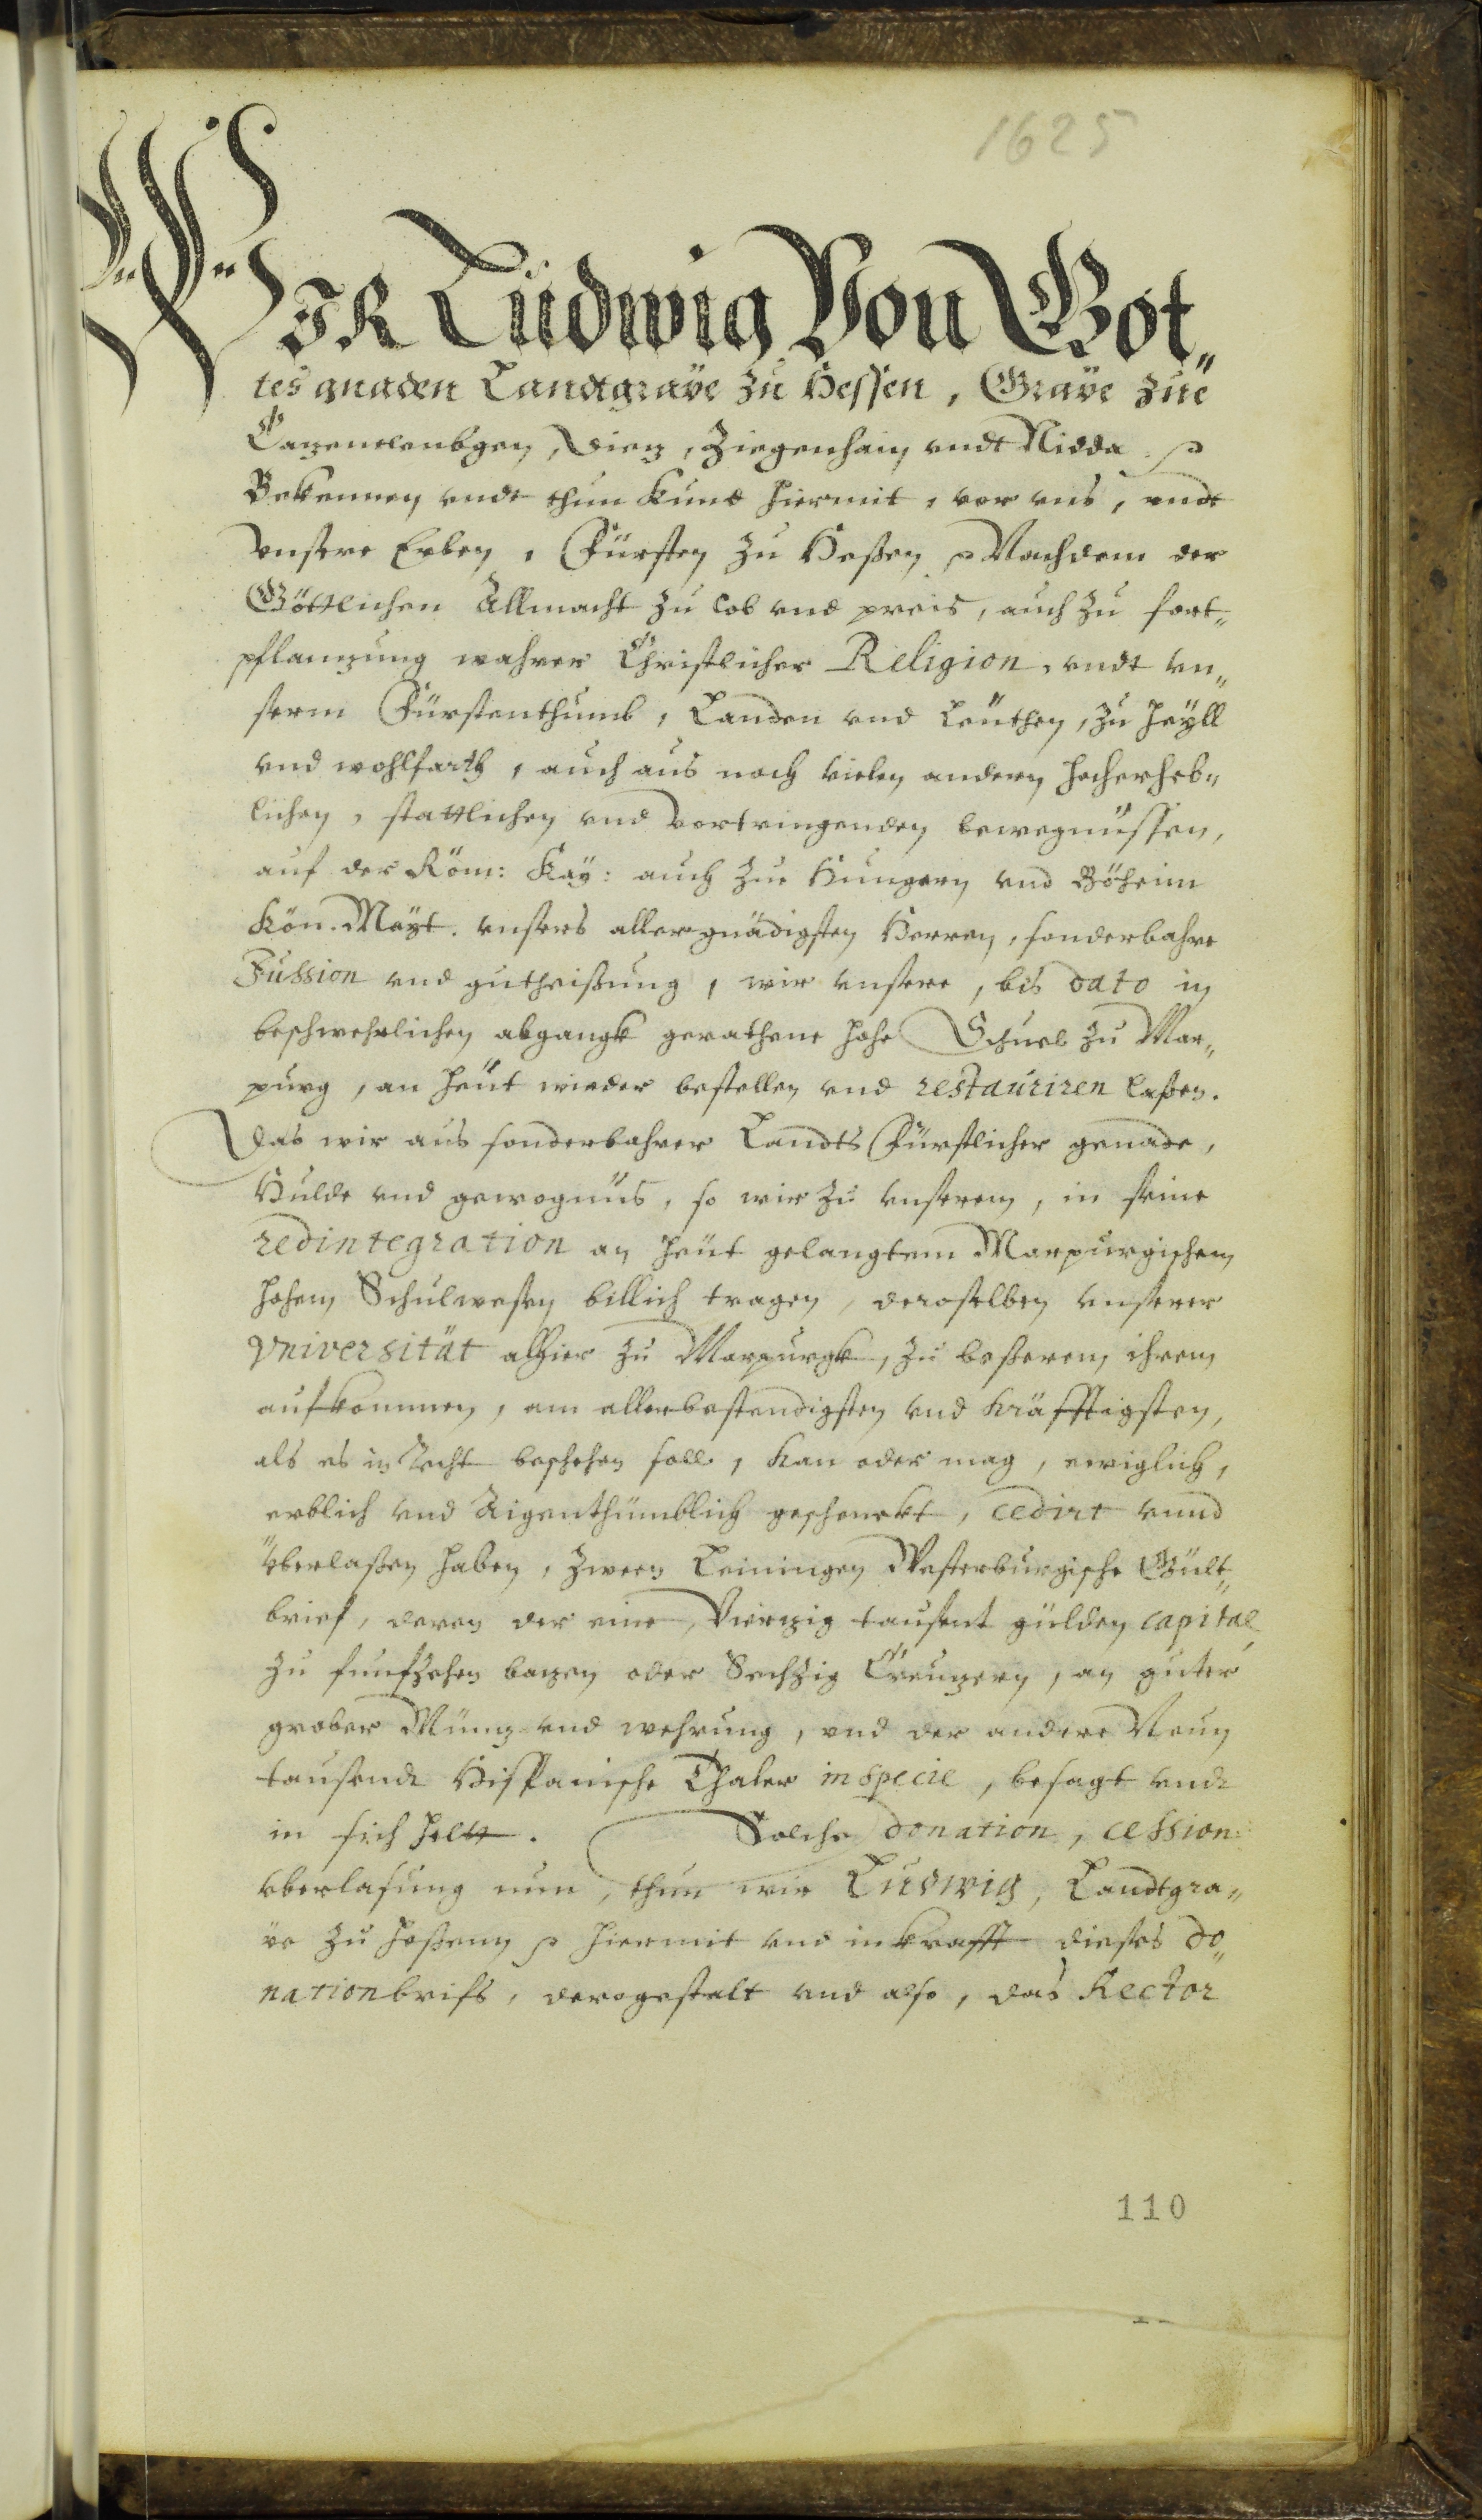 1625
WIR Ludwig Von Got„
tes gnaden Landtgrave zu Hessen, Grave zue
Cazenelenbogen, Diez, Ziegenhain undt Nidda p
Bekennen undt thun kund hiermit, vor uns, undt
unsere Erben, Fürsten zu Heßen p Nachdem der
Göttlichen Allmacht zu lob und preis, auch zu fort„
pflanzung wahrer Christlicher Religion, undt un„
serm Fürstenthumb, Landen und Leuthen, zu heyll
und wohlfarth, auch aus noch vielen andern hocherheb„
lichen, stattlichen und vortringenden bewegnüssen,
auf der Röm: Kay: auch zue Hungern und Böheim
Kön. Mayt. unsers allergnädigsten Herren, sonderbahre
Jussion und gutheißung, wir unsere, bis dato in
beschwehrlichen abgangk gerathene hohe Schuel zu Mar„
purg, an heut wieder bestellen und restauriren laßen.
Das wir aus sonderbahrer Landts Fürstlicher genade,
Hulde und gewognus, so wir zu unserem, in seine
redintegration an heut gelangtem Marpurgischem
hohem Schulwesen billich tragen, deroselben unserer
Vniversität alhier zu Marpurgk, zu beßerem ihrem
aufkommen, am allerbestendigsten und kräfftigsten,
als es in Recht beschehen soll, kan oder mag, ewiglich,
erblich und Aigenthümblich geschenckt, cedirt unnd
überlaßen haben, zween Leiningen Westerburgische Gült„
brief, deren der eine, Vierzig tausent gülden capital
zu funfzehen bazen oder Sechzig Creuzern, an guter
grober Münz und wehrung, und der andere Neun
tausendt Hispanische Thaler in specie, besagt undt
in sich helt. Solche donation, cession
uberlasung nun, thun wir Ludwig, Landtgra„
ve zu Heßenn p hiermit und in krafft dieses do„
nationbrifs, derogestalt und also, das Rector
110